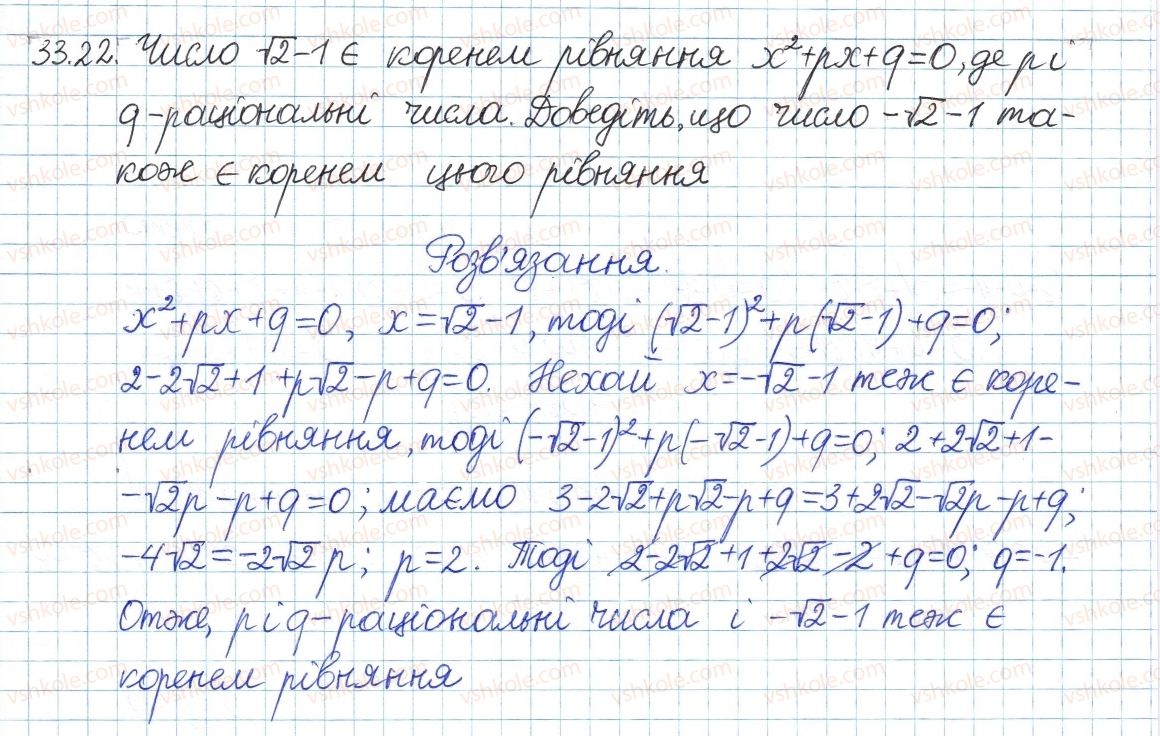 33.22. Число √2-1 є коренем рівняння x²+px+q=0, де p і
q-раціональні числа. Доведіть, що число -√2-1 та-
кож є коренем цього рівняння
Розв'язання.
x²+px+q=0, x=√2-1, тоді (√2-1)²+p(√2-1)+q=0;
2-2√2+1+p√2-p+q=0. Нехай x=-√2-1 теж є коре-
нем рівняння, тоді (-√2-1)²+p(-√2-1)+q=0; 2+2√2+1-
-√2p-p+q=0; маємо 3-2√2+p√2-p+q=3+2√2-√2p-p+q;
-4√2=-2√2p; p=2. Тоді 2-2√2+1+2√2-2+q=0; q=-1.
Отже, p і q-раціональні числа і -√2-1 теж є
коренем рівняння